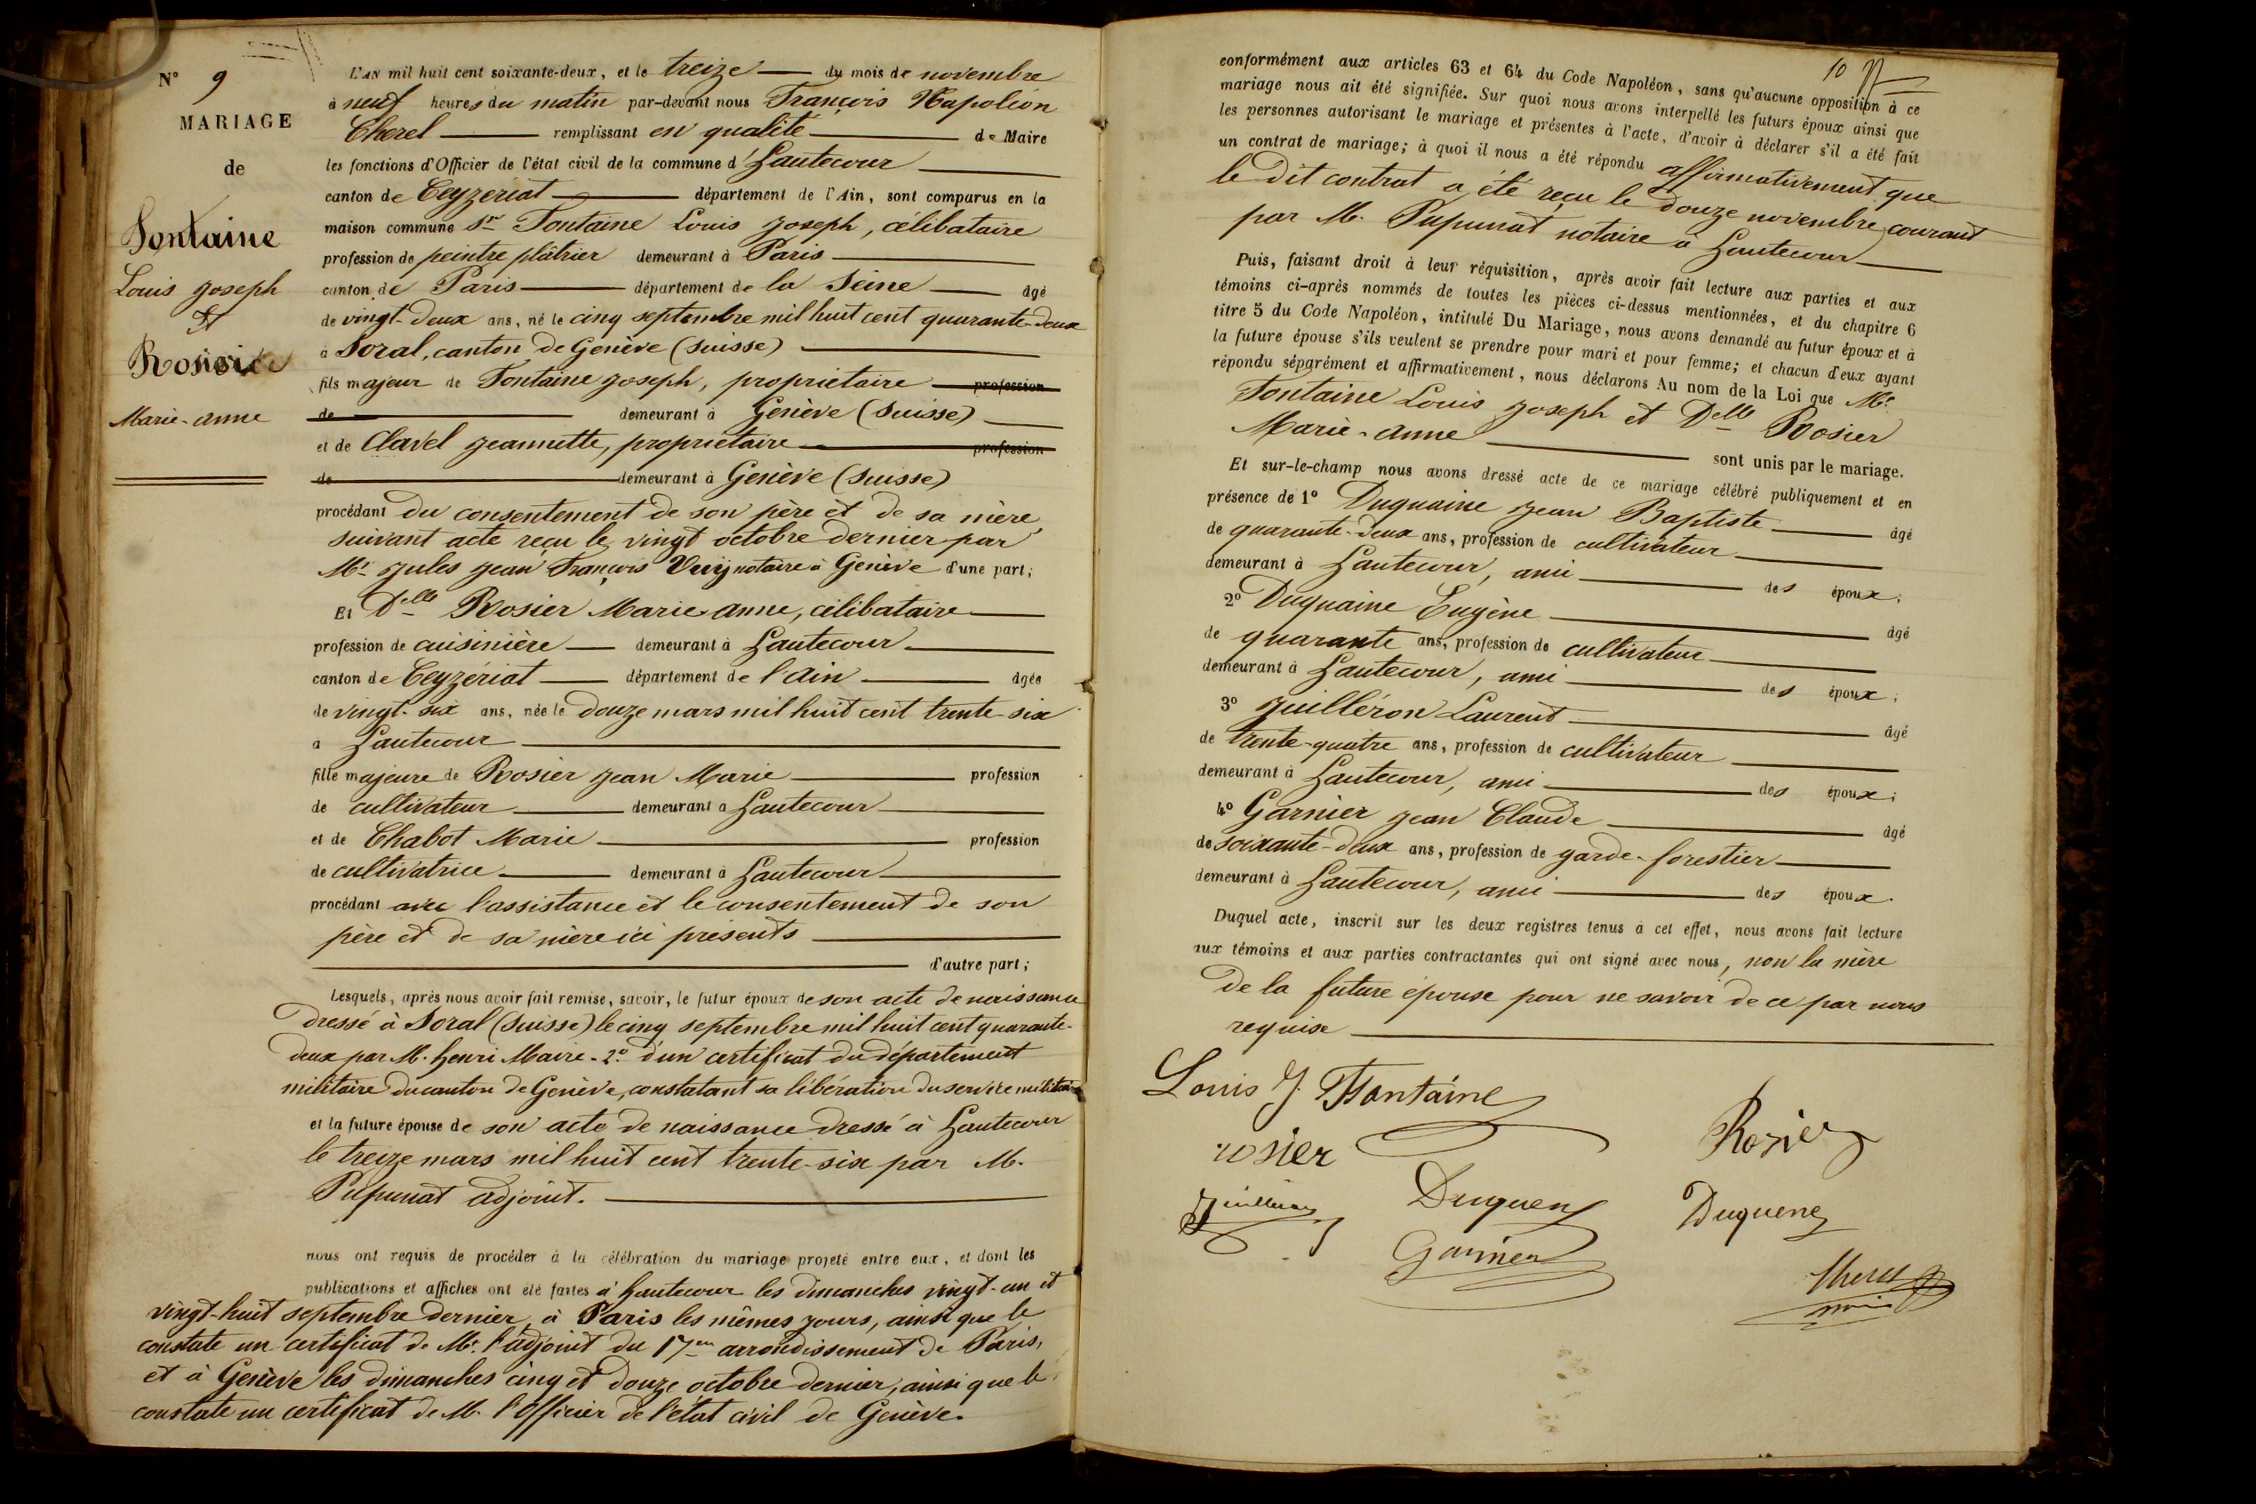 N° 9
MARIAGE
de
Fontaine
Louis Joseph
Et
Rosier
Marie-anne
L'AN mil huit cent soixante-deux, et le treize du mois de novembre
à neuf heures du matin par-devant nous François Napoléon
Cherel remplissant en qualité de Maire
les fonctions d'Officier de l'état civil de la commune d'hautecour
canton de Ceyzeriat département de l'Ain, sont comparus en la
maison commune Sr Fontaine Louis Joseph, célibataire
profession de peintre plâtrier demeurant à Paris
canton de Paris département de la Seine âgé
de vingt-deux ans, né le cinq septembre mil huit cent quarante-deux
à Soral, canton de Genève (Suisse)
fils majeur de Fontaine Joseph, propriétaire profession
de demeurant à Genève (Suisse)
et de Clavel Jeannette, propriétaire profession
de demeurant à Genève (Suisse)
procédant du consentement de son père et de sa mère,
suivant acte reçu le vingt octobre dernier par
Me Jules Jean François Vuy notaire à Genève d'une part;
Et Delle Rosier Marie anne, célibataire
profession de cuisinière demeurant à hautecour
canton de Ceyzériat département de l'Ain âgée
de vingt-six ans, née le douze mars mil huit cent trente-six
à hautecour
fille majeure de Rosier Jean Marie profession
de cultivateur demeurant à hautecour
et de Chabot Marie profession
de cultivatrice demeurant à hautecour
procédant avec l'assistance et le consentement de son
père et de sa mère ici présents
d'autre part;
Lesquels, après nous avoir fait remise, savoir, le futur époux de son acte de naissance
dressé à Soral (Suisse) le cinq septembre mil huit cent quarante-
deux par M. henri Maire. 2° d'un certificat du département
militaire du canton de Genève, constatant sa libération du service militaire
et la future épouse de son acte de naissance dressé à hautecour
le treize mars mil huit cent trente-six par M.
Pupunat adjoint.
nous ont requis de procéder à la célébration du mariage projeté entre eux, et dont les
publications et affiches ont été faites à hautecour les dimanches vingt-un et
vingt-huit septembre dernier, à Paris les mêmes jours, ainsi que le
constate un certificat de Mr. l'adjoint du 17me arrondissement de Paris,
et à Genève les dimanches cinq et douze octobre dernier, ainsi que le
constate un certificat de M. l'officier de l'état civil de Genève.
10
conformément aux articles 63 et 64 du Code Napoléon, sans qu'aucune opposition à ce
mariage nous ait été signifiée. Sur quoi nous avons interpellé les futurs époux ainsi que
les personnes autorisant le mariage et présentes à l'acte, d'avoir à déclarer s'il a été fait
un contrat de mariage; à quoi il nous a été répondu affirmativement que
le dit contrat a été reçu le douze novembre courant
par M. Pupunat notaire à hautecour
Puis, faisant droit à leur réquisition, après avoir fait lecture aux parties et aux
témoins ci-après nommés de toutes les pièces ci-dessus mentionnées, et du chapitre 6
titre 5 du Code Napoléon, intitulé Du Mariage, nous avons demandé au futur époux et à
la future épouse s'ils veulent se prendre pour mari et pour femme; et chacun d'eux ayant
répondu séparément et affirmativement, nous déclarons Au nom de la Loi que Mr.
Fontaine Louis Joseph et Delle Rosier
Marie-anne sont unis par le mariage.
Et sur-le-champ nous avons dressé acte de ce mariage célébré publiquement et en
présence de 1° Duquaine Jean Baptiste âgé
de quarante-deux ans, profession de cultivateur
demeurant à hautecour, ami des époux;
2° Duquaine Eugène âgé
de quarante ans, profession de cultivateur
demeurant à hautecour, ami des époux;
3° Juilléron Laurent âgé
de trente-quatre ans, profession de cultivateur
demeurant à hautecour, ami des époux;
4° Garnier Jean Claude âgé
de soixante-deux ans, profession de garde-forestier
demeurant à hautecour, ami des époux.
Duquel acte, inscrit sur les deux registres tenus à cet effet, nous avons fait lecture
aux témoins et aux parties contractantes qui ont signé avec nous, non la mère
de la future épouse pour ne savoir de ce par nous
requise
Louis J. Fontaine
rosier Rosier
Juilleron Duquen Duquene
Garnier
Cherel
maire